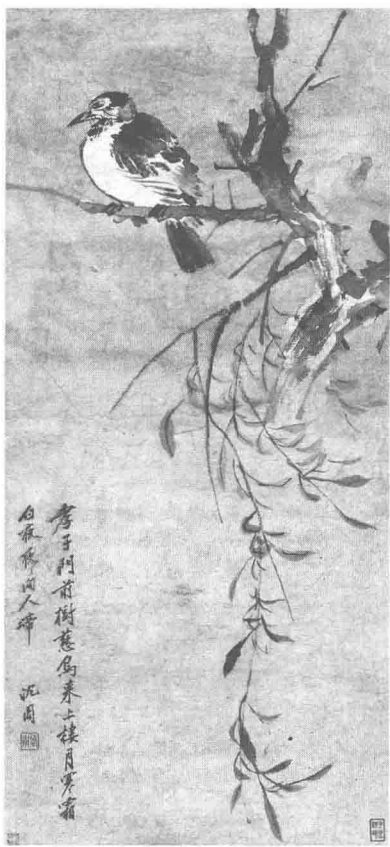 孝子門前樹慈烏來上棲月寒霜
白夜向人啼 沈周